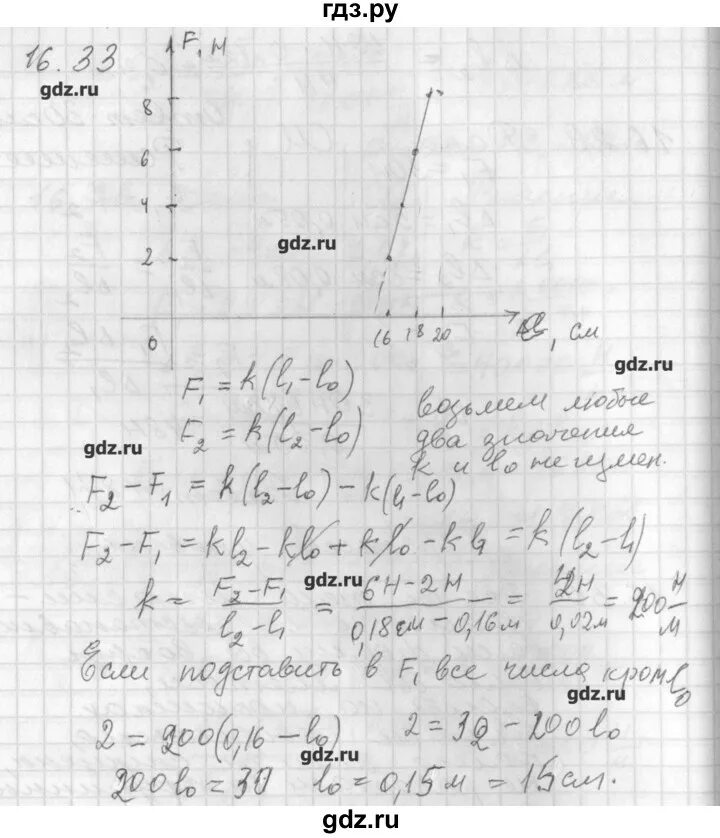 гдз.ру
16.33
F, Н
gdz.ru
8
6
4
gdz.ru
2
0
16 18 20
, см
gdz.ru
F₁ = k(l₁ – l₀)
F₂ = k(l₂ – l₀)
возьмем любые
два значения
k и l₀ не измен.
gdz.ru
F₂ – F₁ = k(l₂ – l₀) – k(l₁ – l₀)
F₂ – F₁ = kl₂ – kl₀ + kl₀ – kl₁ = k(l₂ – l₁)
gdz.ru
k = F₂ – F₁ / l₂ – l₁ = 6Н – 2Н / 0,18см – 0,16м = 4Н / 0,02м = 200 Н/м
Если подставить в F₁ все числа кром l₀
gdz.ru
2 = 200(0,16 – l₀) 2 = 32 – 200l₀
gdz.ru
200l₀ = 30 l₀ = 0,15м = 15см.
gdz.ru